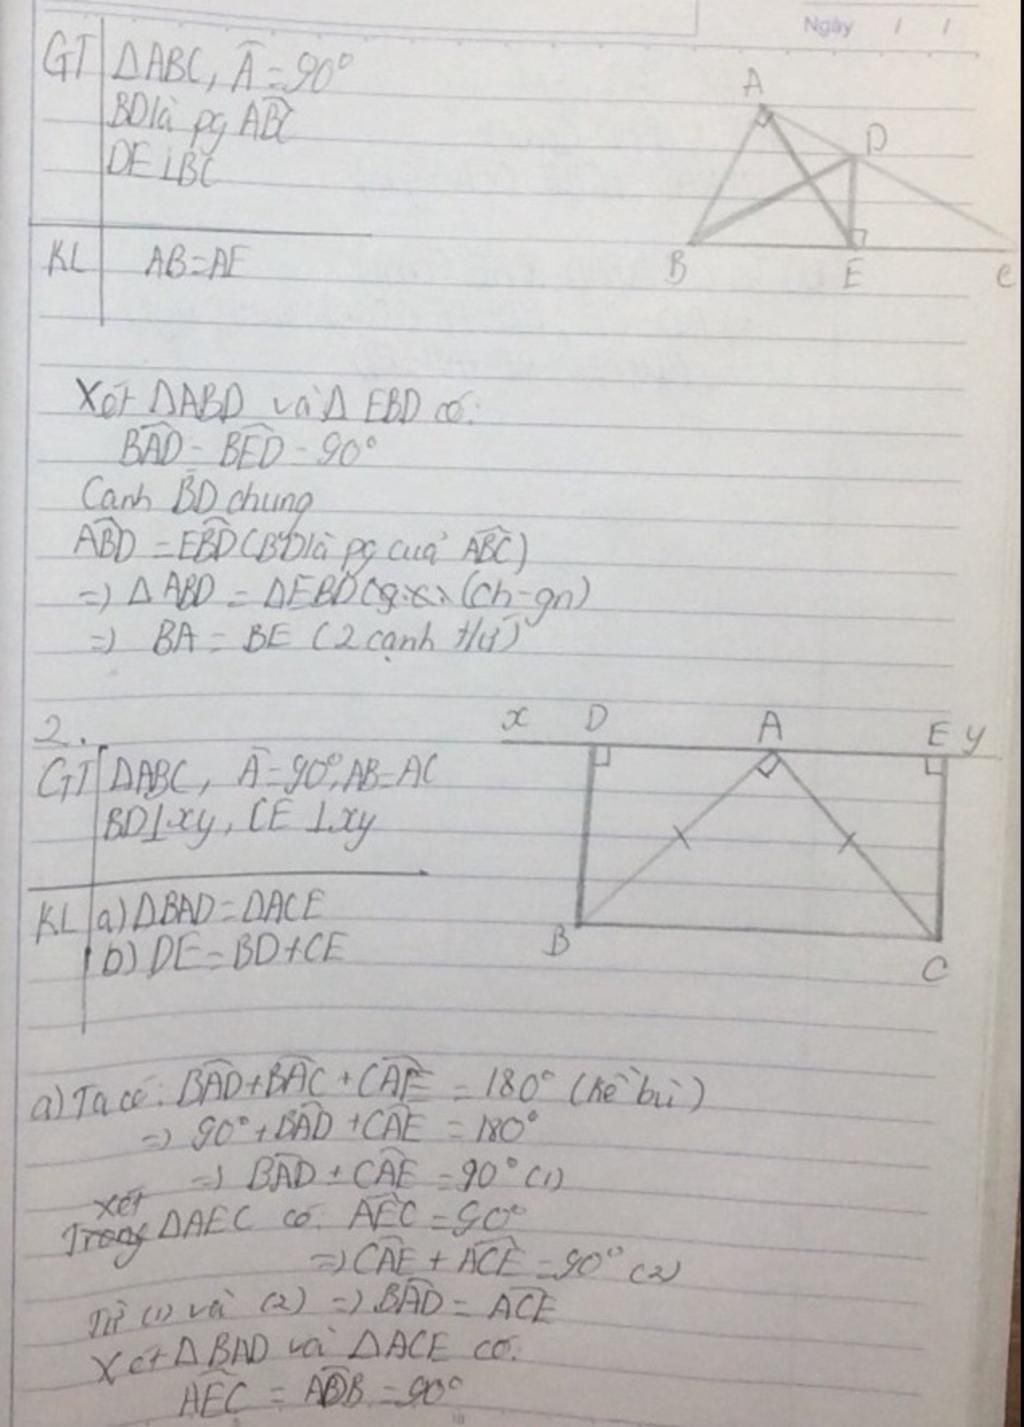 Ngày / /
GT ΔABC, Â = 90°
BD là pg ABC
DE ⊥ BC
KL AB = AE
A
D
B
E
C
Xét ΔABD và Δ EBD có:
BAD = BED = 90°
Cạnh BD chung
ABD = EBD (BD là pg của ABC)
=> ΔABD = ΔEBD (ch-gn)
=> BA = BE (2 cạnh t/ư)
2.
x D A E y
GT ΔABC, Â = 90°, AB = AC
BD ⊥ xy, CE ⊥ xy
KL a) ΔBAD = ΔACE
b) DE = BD + CE
B
C
a) Ta có: BAD + BAC + CAE = 180° (kề bù)
=> 90° + BAD + CAE = 180°
=> BAD + CAE = 90° (1)
Xét
Trong ΔAEC có: AEC = 90°
=> CAE + ACE = 90° (2)
Từ (1) và (2) => BAD = ACE
Xét ΔBAD và ΔACE có:
AEC = ADB = 90°